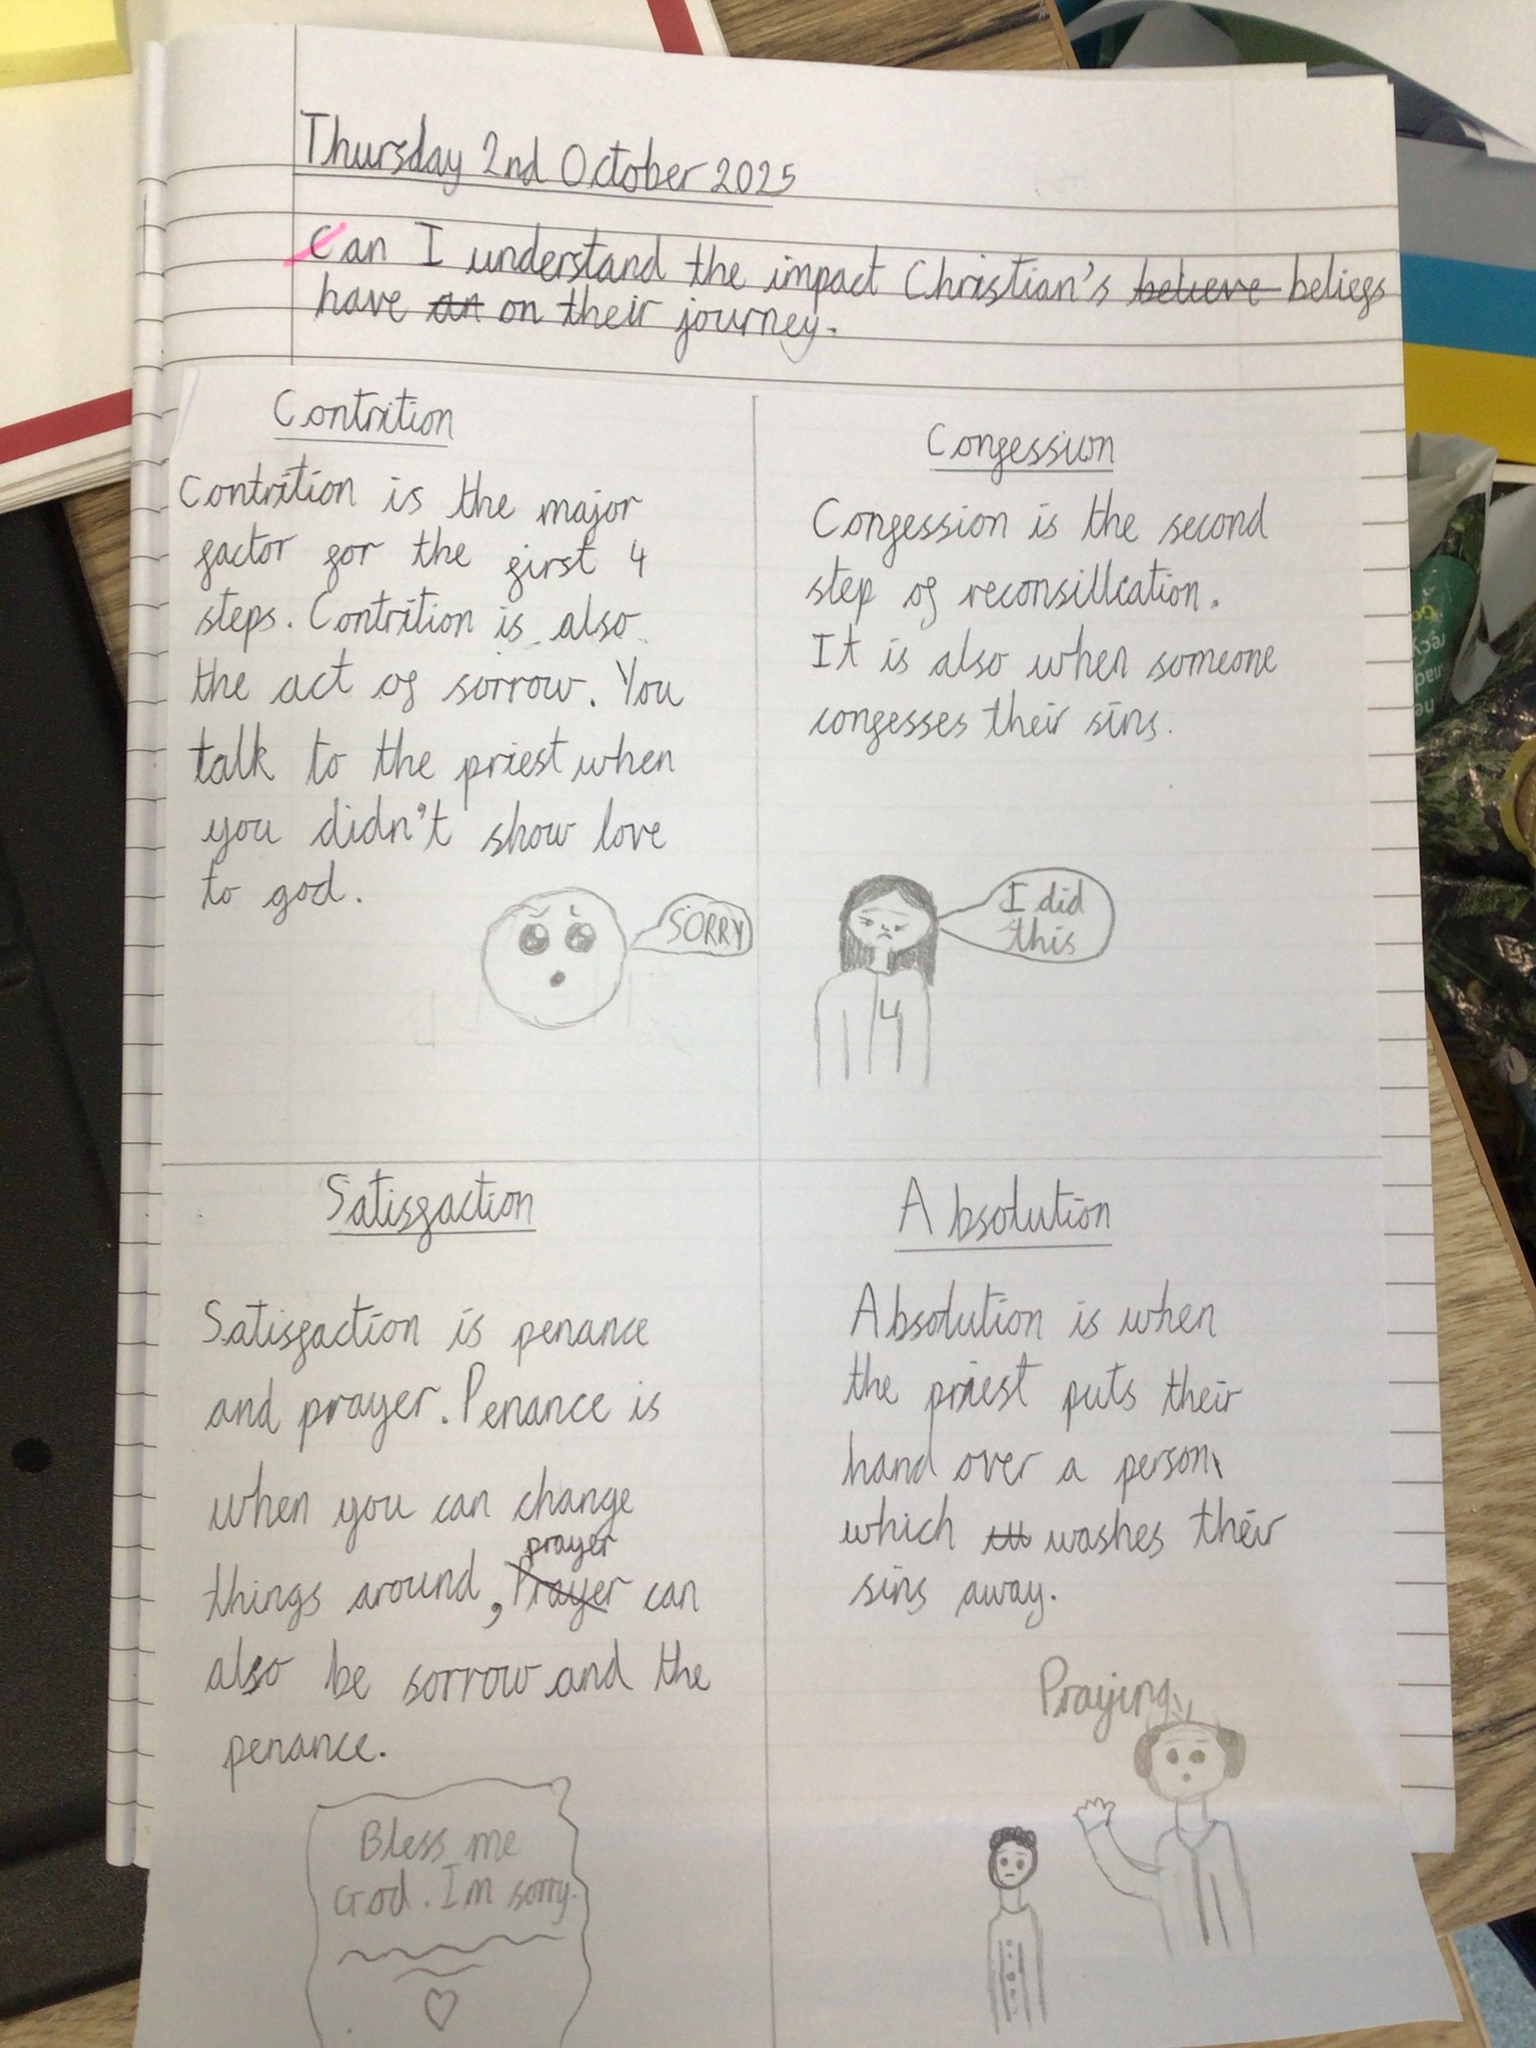 Thursday 2nd October 2025
Can I understand the impact Christian's believe beliefs
have an on their journey.
Contrition
Contrition is the major
factor for the first 4
steps. Contrition is also
the act of sorrow. You
talk to the priest when
you didn't show love
to god.
SORRY
Confession
Confession is the second
step of reconsillication.
It is also when someone
confesses their sins.
I did
this
4
Satisfaction
Satisfaction is penance
and prayer. Penance is
when you can change
prayer
things around, Prayer can
also be sorrow and the
penance.
Bless me
God. Im sorry.
Absolution
Absolution is when
the priest puts their
hand over a person
which washes their
sins away.
Praying